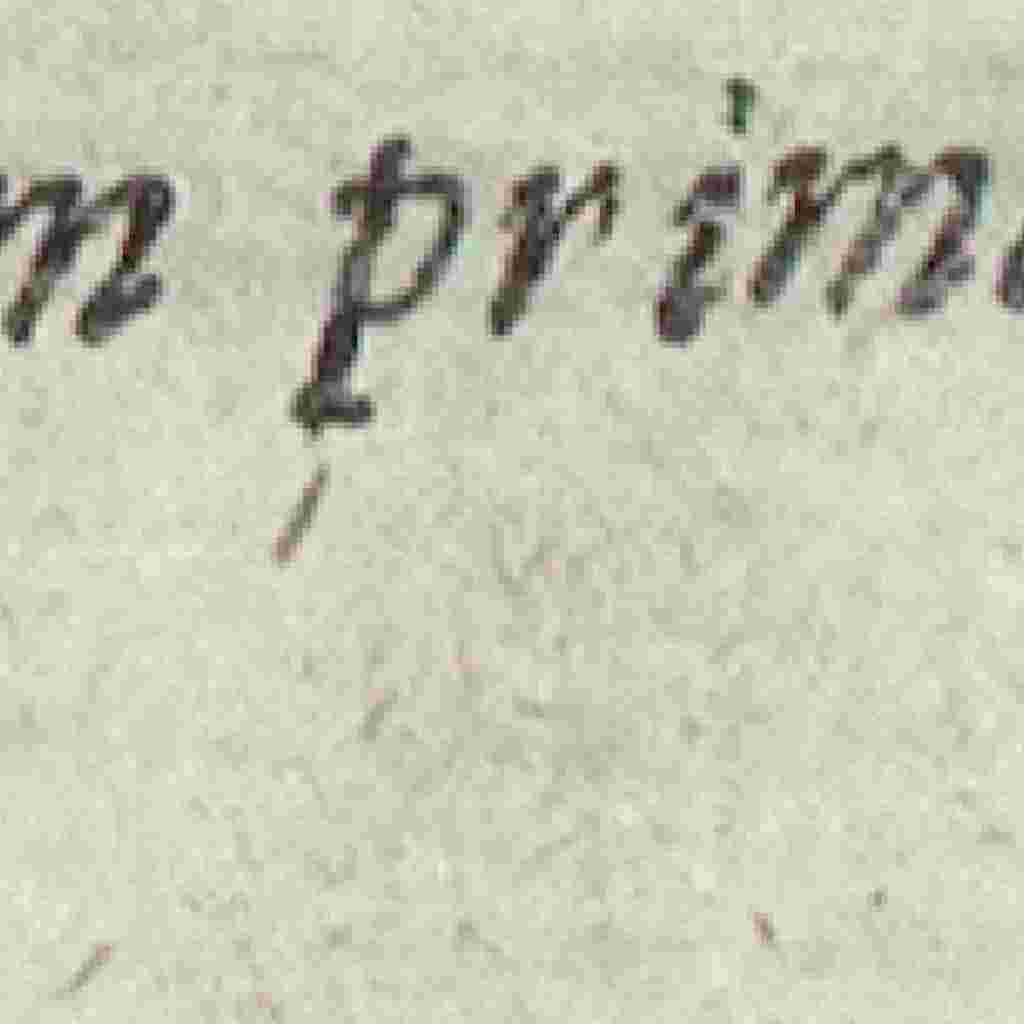 m prim